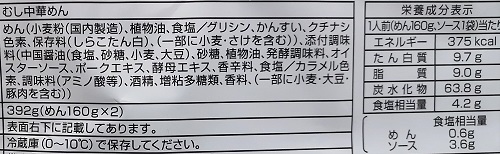 むし中華めん
めん(小麦粉(国内製造)、植物油、食塩/グリシン、かんすい、クチナシ
色素、保存料(しらこたん白)、(一部に小麦・さけを含む))、添付調味
料(中国醤油(食塩、砂糖、小麦、大豆)、砂糖、植物油、発酵調味料、オイ
スターソース、ポークエキス、酵母エキス、香辛料、食塩/カラメル色
素、調味料(アミノ酸等)、酒精、増粘多糖類、香料、(一部に小麦・大豆・
豚肉を含む))
392g(めん160g×2)
表面右下に記載してあります。
冷蔵庫(0~10℃)で保存してください。
栄養成分表示
1人前(めん160g、ソース1袋)当た
エネルギー 375 kcal
たん白質 9.7 g
脂質 9.0 g
炭水化物 63.8 g
食塩相当量 4.2 g
食塩相当量
めん 0.6g
ソース 3.6g